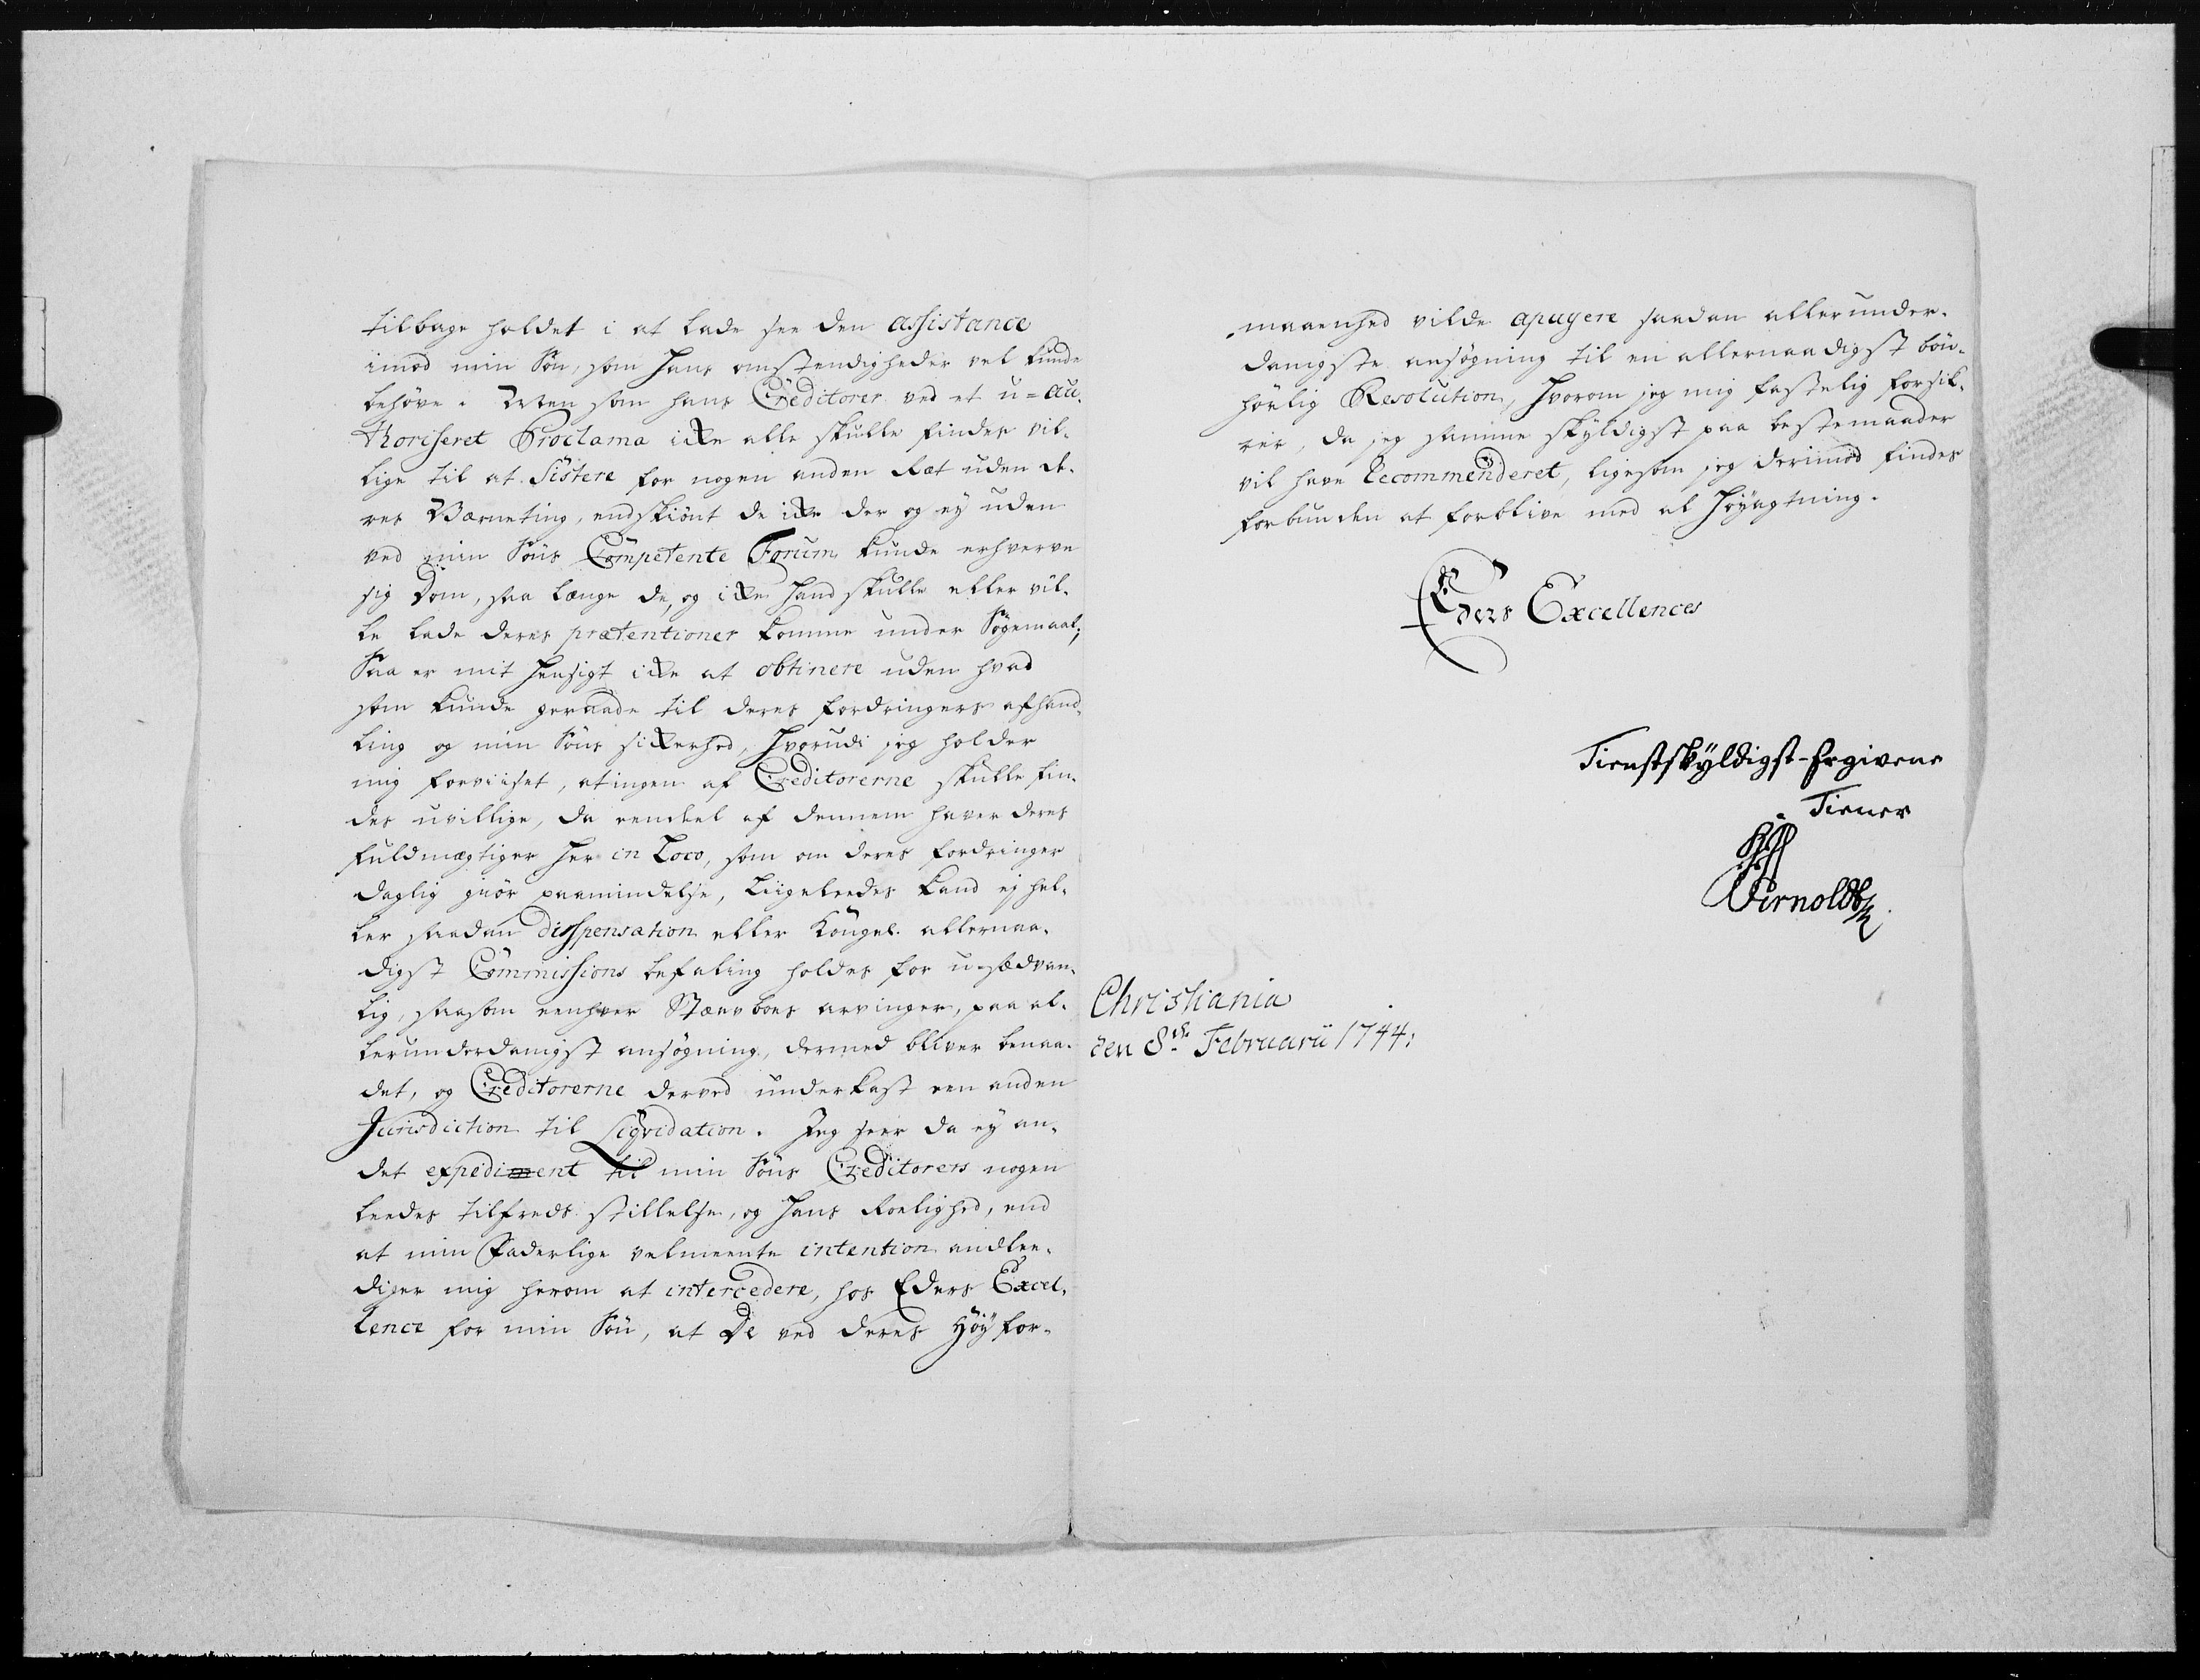 tilbage holdet i at lade see den assistance
imod min Søn, som Hans omstendigheder vel kunde
behøve. Men som hans Creditorer ved et u=au-
thoriseret Proclama ikke alle skulle findes vil-
lige til at Sistere for nogen anden Ræt uden de-
res Værneting, endskiønt de ikke der og ey uden
ved min Søns Competente Forum kunde erhverve
sig Dom, saa længe de, og ikke Hand skulle eller vil-
le lade deres prætentioner komme under Søgemaal;
Saa er mit Hensigt ikke at obtinere uden hvad
som kunde geraade til deres fordringers afhand-
ling og min Søns sikkerhed, Hvorudi jeg holder
mig forviiset, at ingen af Creditorerne skulle fin-
des uvillige, da eendeel af dennem haver deres
fuldmægtiger her in Loco, som om deres fordringer
daglig giør paamindelse, Liigeleedes kand ej hel-
ler saadan dispensation eller Kongel. allernaa-
digst Commissions befaling holdes for u-sædvan-
lig, saasom eenhver Stærvboes arvinger, paa al-
lerunderdanigst ansøgning, dermed bliver benaa-
det, og Creditorerne derved underkast een anden
Jurisdiction til Liqvidation. Jeg seer da ey an-
det expedient til min Søns Creditorers nogen
leedes tilfreds stillelse, og Hans Roelighed, end
at min Faderlige velmeente intention andlee-
diger mig herom at intercedere, hos Eders Excel-
lence for min Søn, at De ved deres Høy for-
maaenhed vilde apuyere saadan allerunder-
danigste ansøgning til en allernaadigst bøn-
hørlig Resolution, Hvorom jeg mig fastelig forsik-
rer, da jeg samme skyldigst paa bestemaader
vil have Recommenderet, ligesom jeg derimod findes
forbunden at forblive med al Høyagtning.
Eders Excellences
Tienstskyldigst-Ergivene
Tiener
Arnoldt
Christiania
den 8de Februarii 1744.